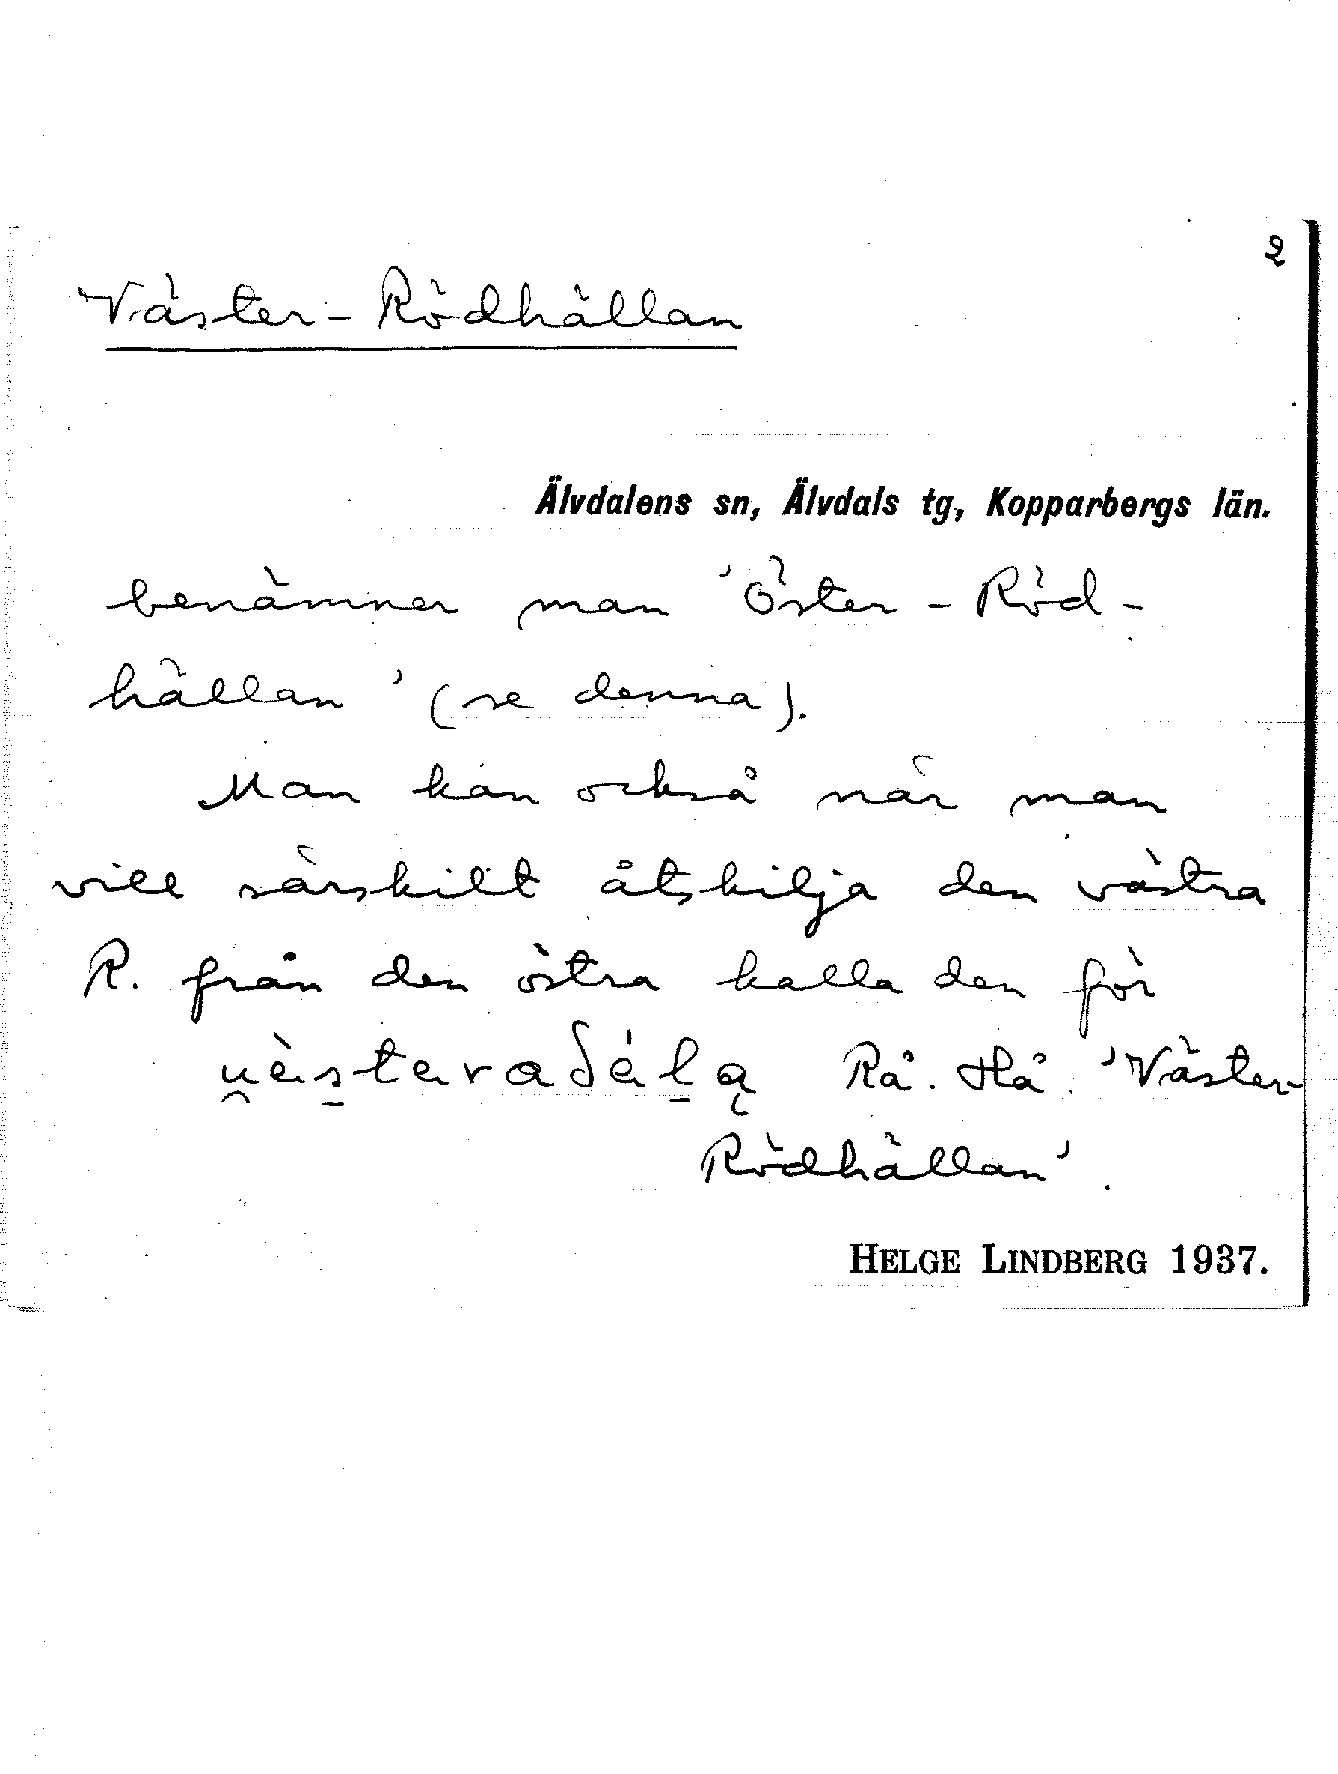 2
Väster-Rödhällan
Älvdalens sn, Älvdals tg, Kopparbergs län.
benämner man 'Öster-Röd-
hällan' (se denna).
Man kan också när man
vill särskilt åtskilja den västra
R. från den östra kalla den för
Rå. Hå. 'Väster-
Rödhällan'.
HELGE LINDBERG 1937.